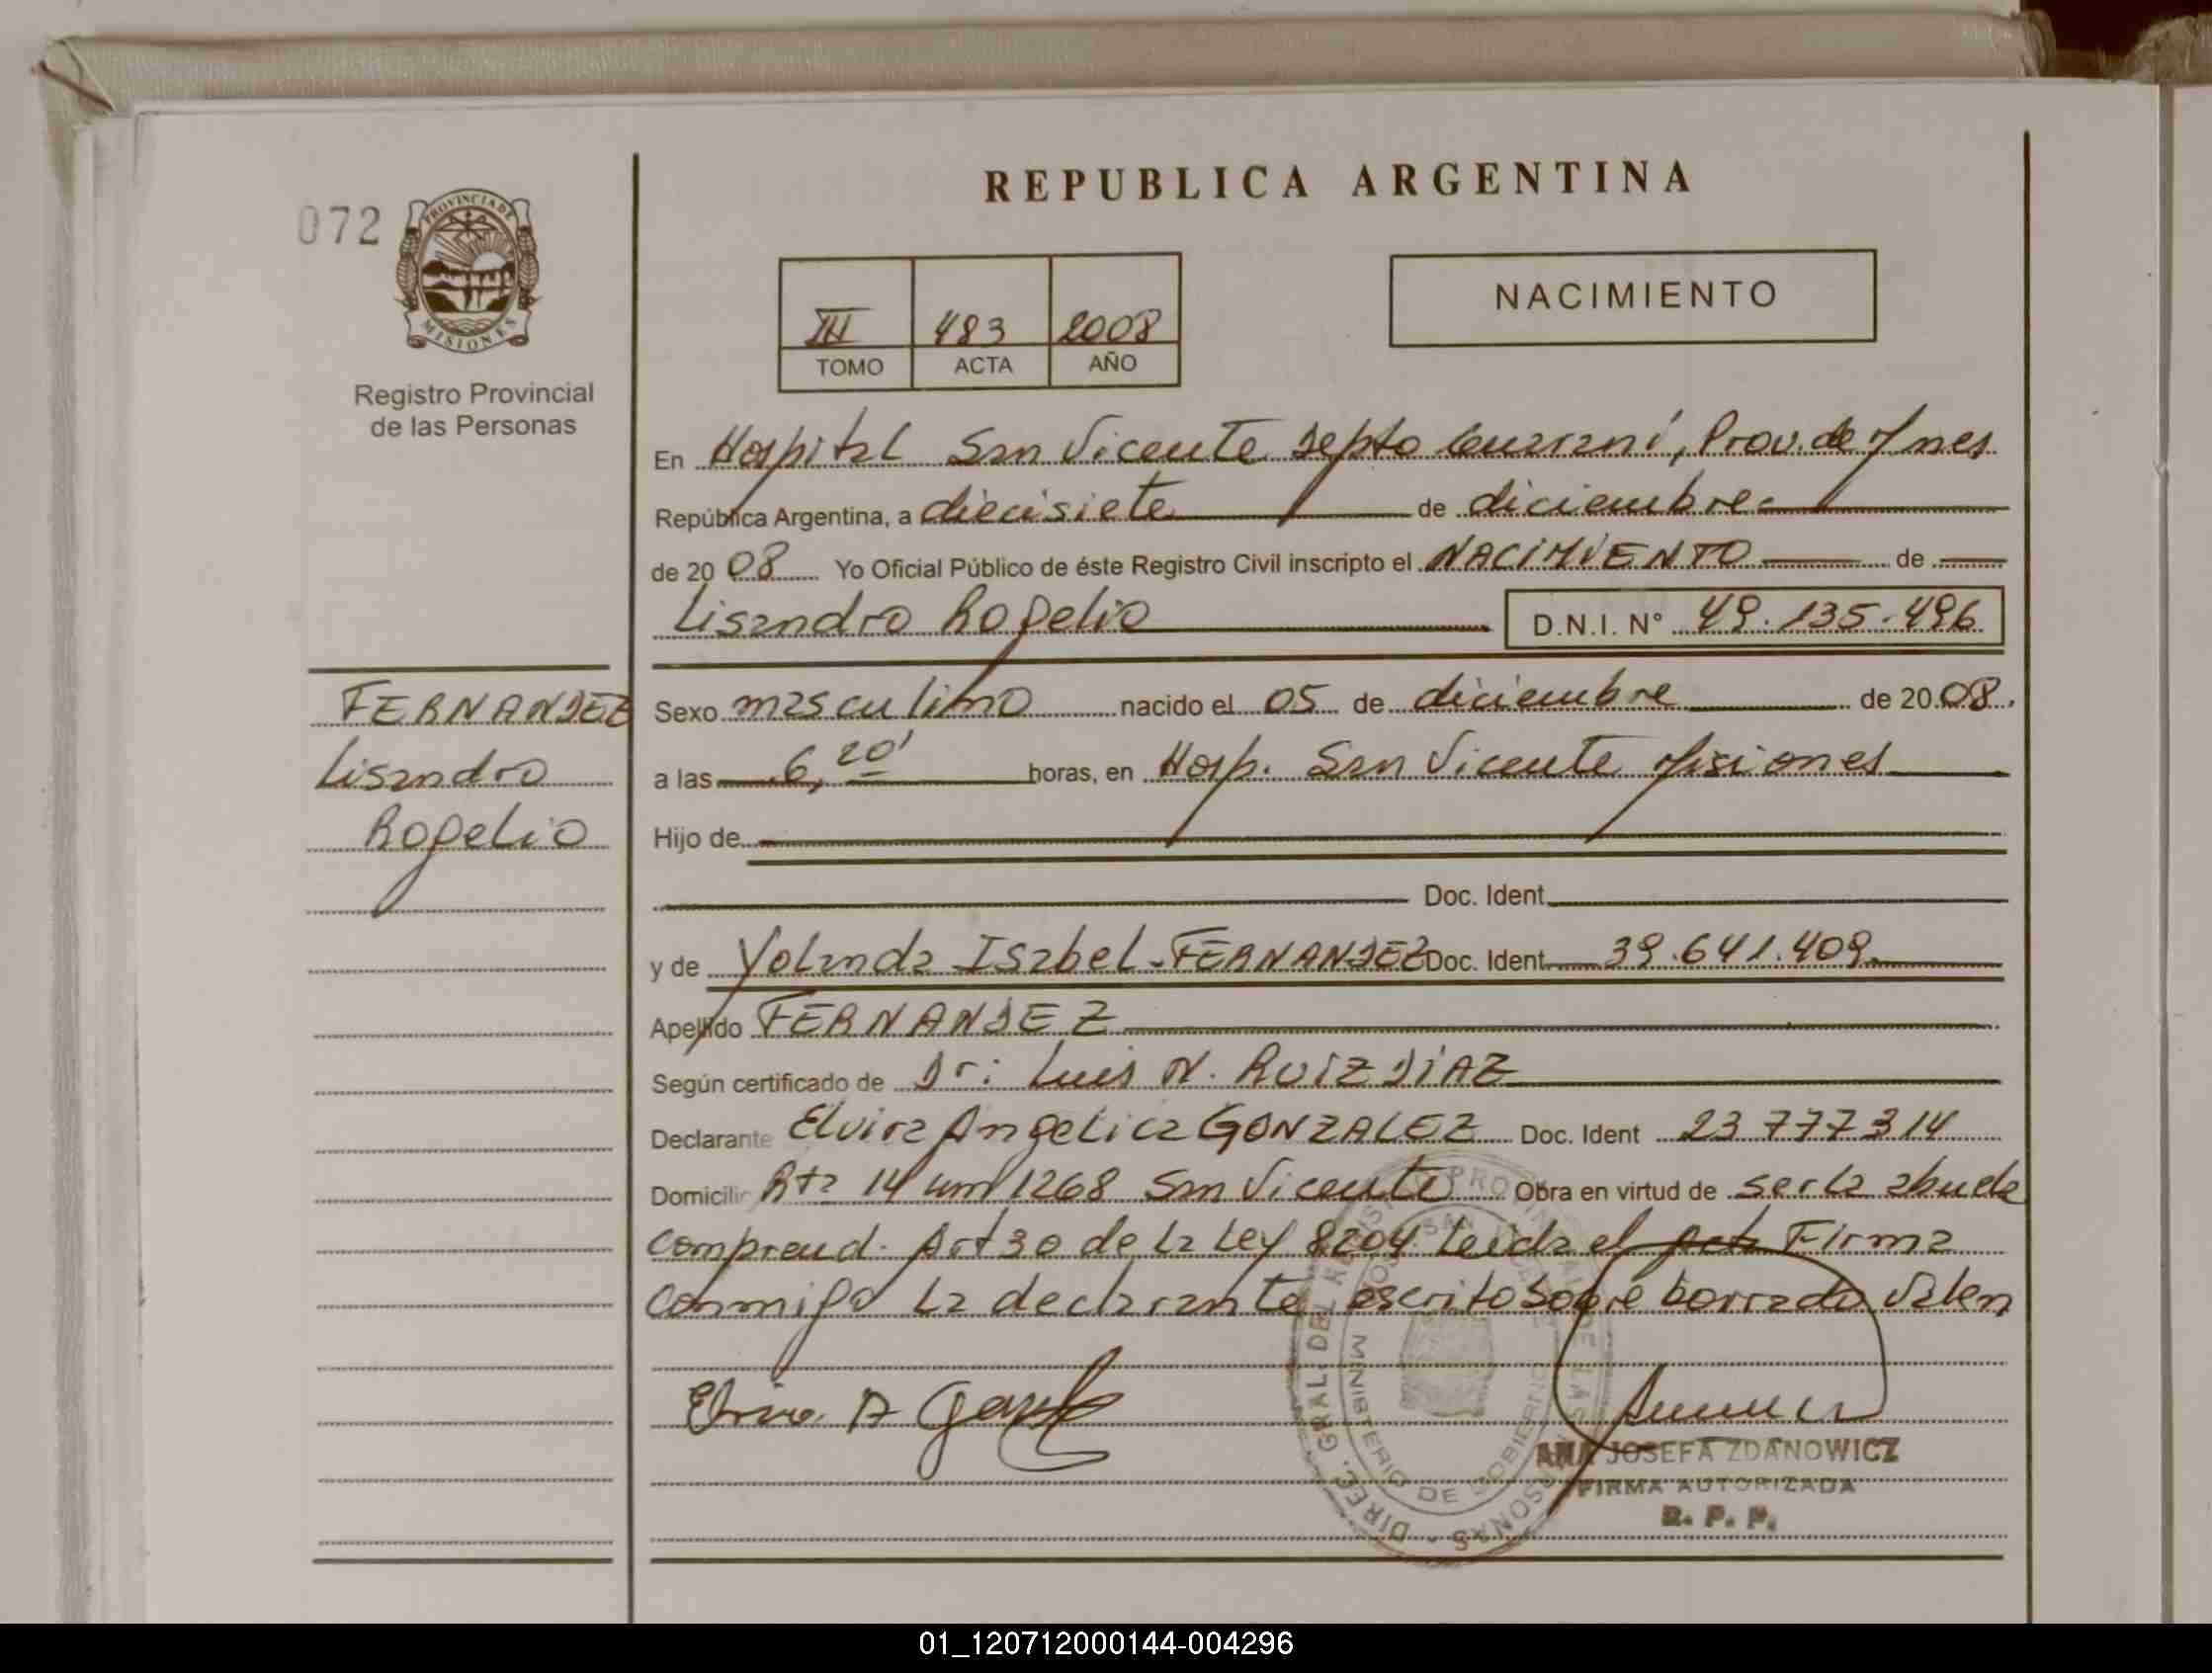 REPUBLICA ARGENTINA
072
PROVINCIA DE
MISIONES
Registro Provincial
de las Personas
III 483 2008
TOMO ACTA AÑO
NACIMIENTO
En Hospital San Vicente Depto Guarani, Prov. de Mnes
República Argentina, a diecisiete de diciembre
de 20 08 Yo Oficial Público de éste Registro Civil inscripto el NACIMIENTO de
Lisandro Rogelio D.N.I. N° 49.135.496
FERNANDEZ
Lisandro
Rogelio
Sexo masculino nacido el 05 de diciembre de 20 08.
a las 6,20' horas, en Hosp. San Vicente Misiones
Hijo de
Doc. Ident.
y de Yolanda Isabel FERNANDEZ Doc. Ident 39.641.409
Apellido FERNANDEZ
Según certificado de Dr: Luis N. RUIZ DIAZ
Declarante Elvira Angelica GONZALEZ Doc. Ident 23 777 314
Domicilio Rta 14 km 1268 San Vicente Obra en virtud de ser la abuela
comprend. Art 30 de la Ley 8204 Leida el acta Firma
conmigo la declarante, escrito sobre borrado Valen
Elvira A Gonzalez
DIREC. GRAL. DEL REGISTRO PROVINCIAL DE LAS PERSONAS
MINISTERIO DE GOBIERNO
ANA JOSEFA ZDANOWICZ
FIRMA AUTORIZADA
R. P. P.
01_120712000144-004296